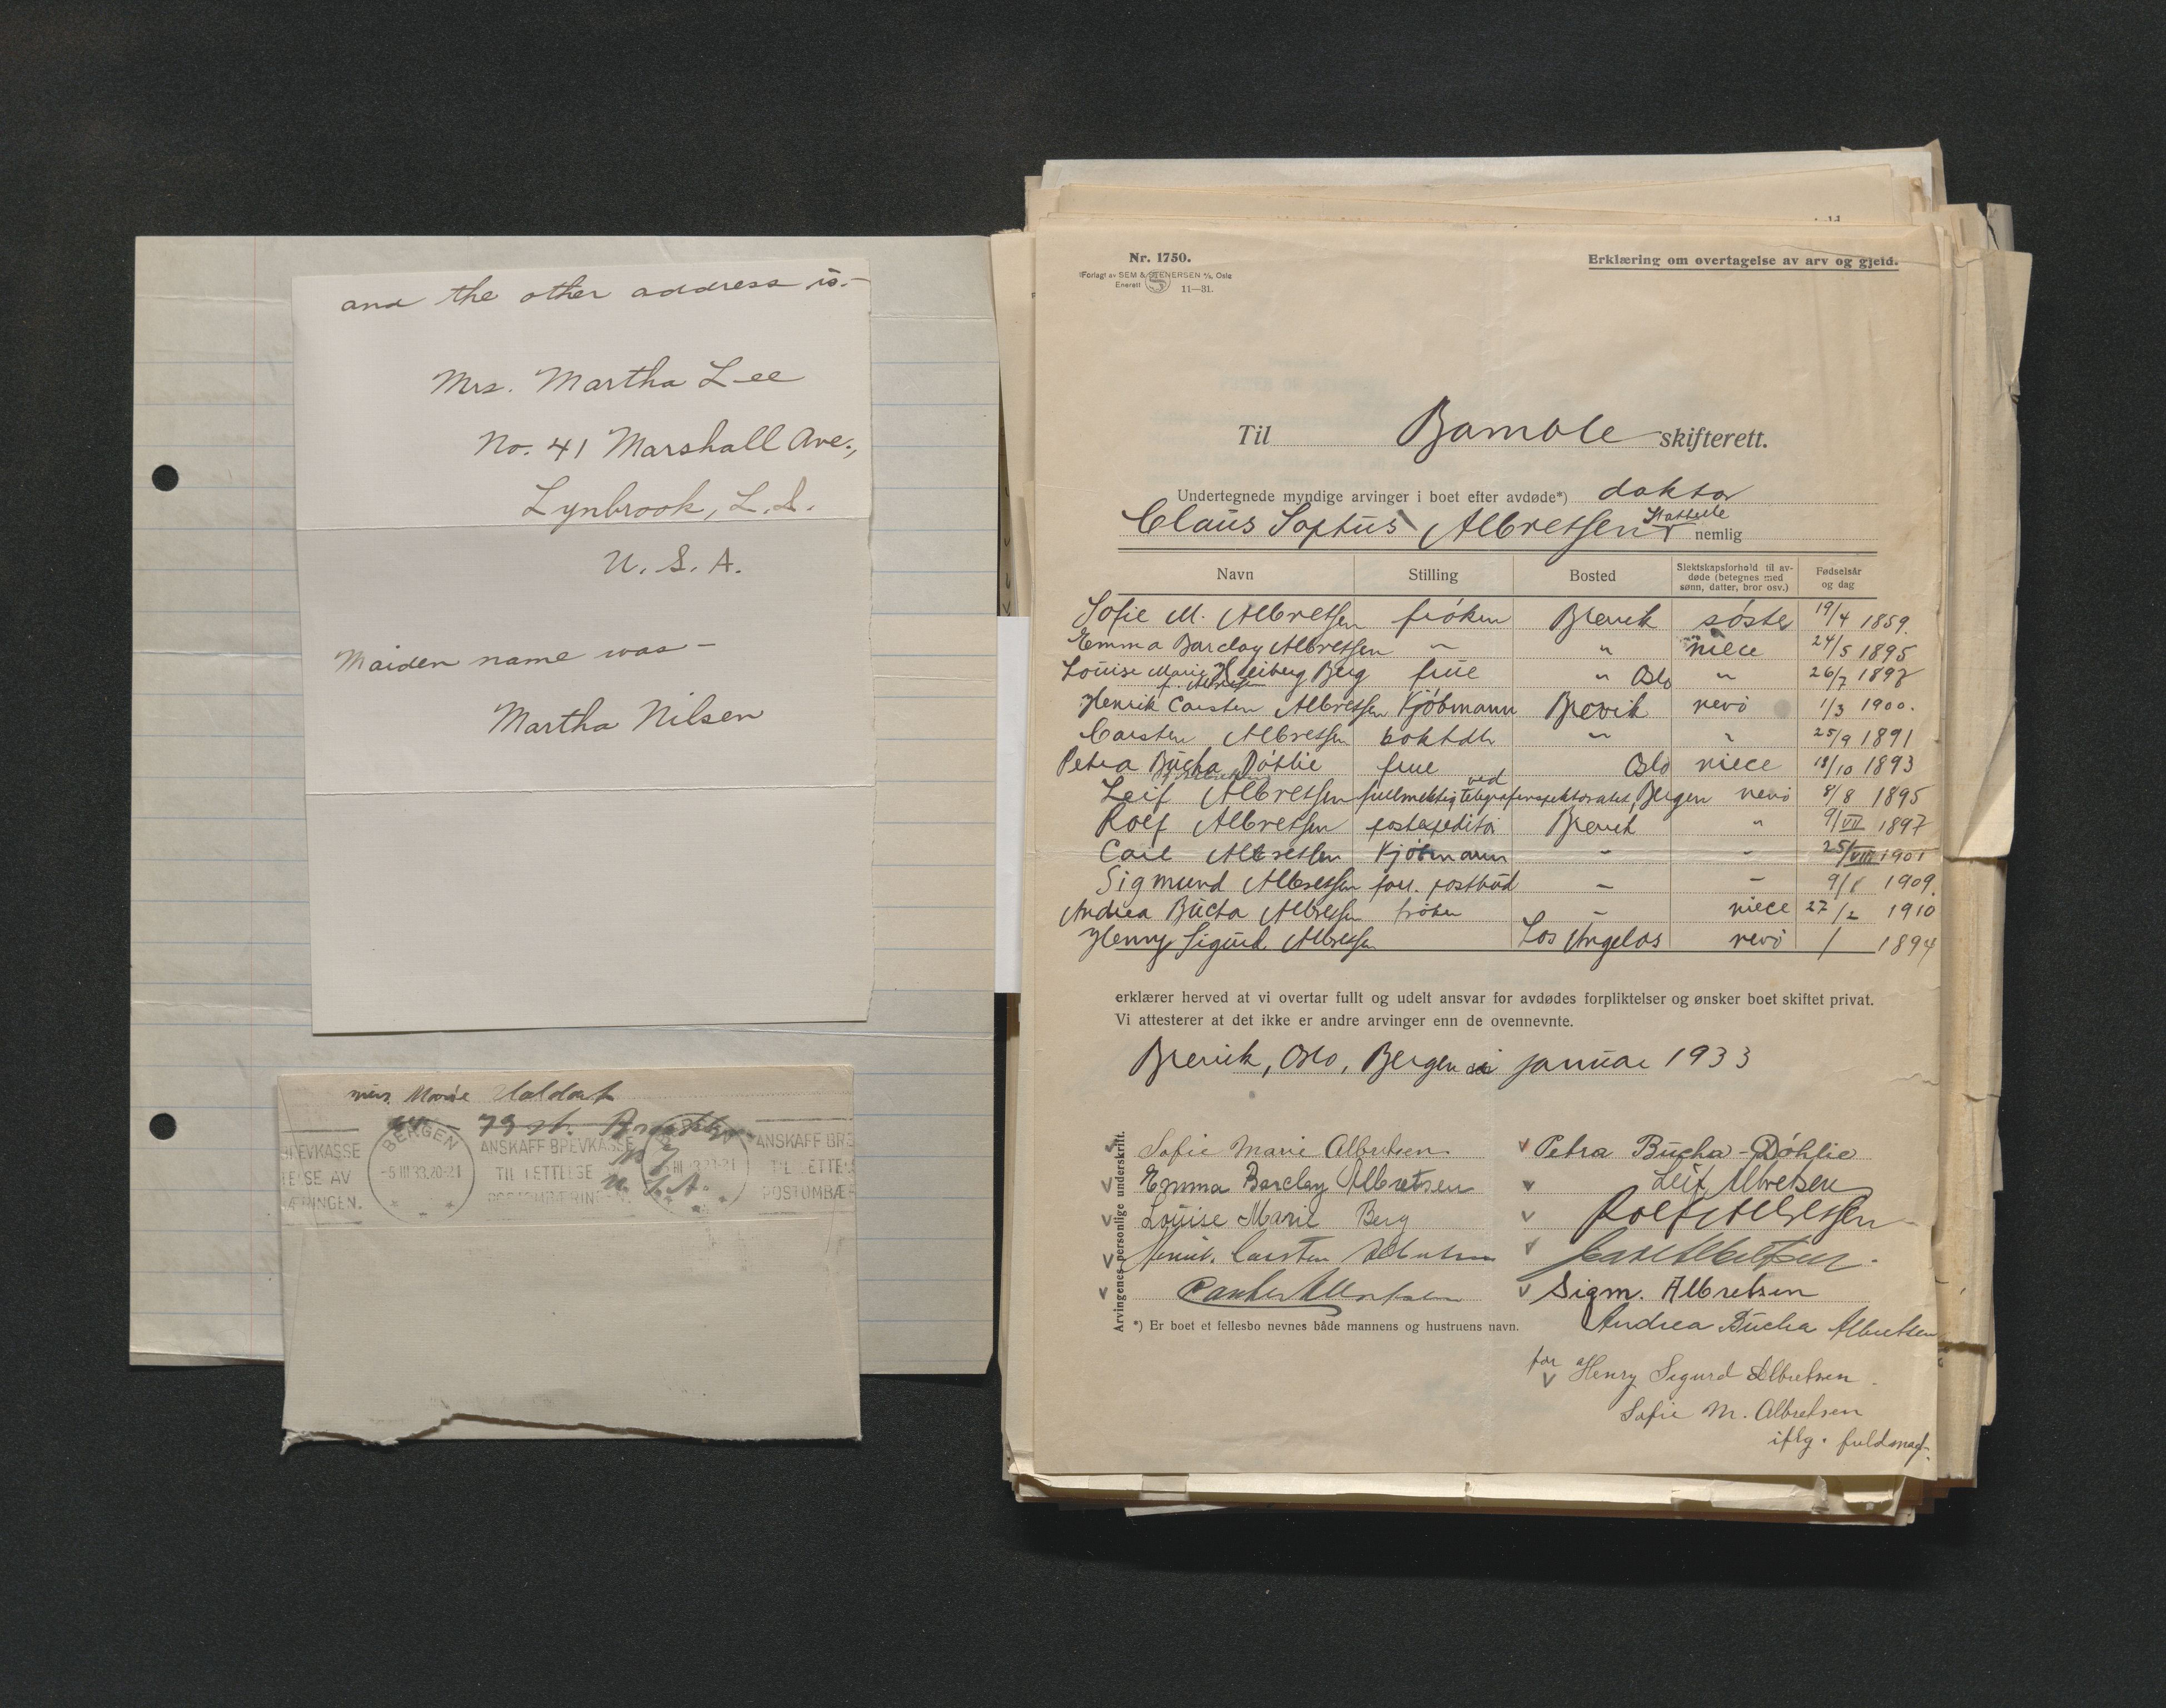 and the other address is.-
Mrs. Martha Lee
No. 41 Marshall Ave.,
Lynbrook, L.I.
U.S.A.
Maiden name was -
Martha Nilsen
79 st. 
BREVKASSE
BERGEN
ANSKAFF BREVKASSE
ANSKAFF BRE
-5 III 33.20-21
TIL LETTELSE
N.Y.
U.S.A.
POSTOMBÆ
Nr. 1750.
Forlagt av SEM & STENERSEN A/S, Oslo
Enerett S 11—31.
Erklæring om overtagelse av arv og gjeld.
Til Bamble skifterett.
Undertegnede myndige arvinger i boet efter avdøde*) doktor
Claus Sophus Albretsen Stathelle nemlig
Navn Stilling Bosted Slektskapsforhold til avdøde (betegnes med sønn, datter, bror osv.) Fødselsår og dag
Sofie M. Albretsen frøken Brevik søster 19/4 1859.
Emma Barclay Albretsen " " niece 24/5 1895
Louise Marie Heiberg Berg frue " Oslo " 26/7 1897
f. Albretsen
Henrik Carsten Albretsen Kjøbmann Brevik nevø 1/3 1900.
Carsten Albretsen bokhdlr " " 25/9 1891
Petra Bucha Døhlie frue Oslo niece 18/10 1893
Leif Albretsen fullmektig ved telegrafinspektoratet, Bergen nevø 8/8 1895
Rolf Albretsen postexpeditør Brevik " 9/VII 1897
Carl Albretsen Kjøbmann - - 25/VIII 1901
Sigmund Albretsen postbud - - 1909.
Andrea Bucha Albretsen frøken - niece 27/2 1910
Henry Sigurd Albretsen Los Angelos nevø / 1894
erklærer herved at vi overtar fullt og udelt ansvar for avdødes forpliktelser og ønsker boet skiftet privat.
Vi attesterer at det ikke er andre arvinger enn de ovennevnte.
Brevik, Oslo, Bergen i januar 1933
Arvingenes personlige underskrift.
Sofie Marie Albretsen
Emma Barclay Albretsen
Louise Marie Berg
Henrik Carsten Albretsen
Carsten Albretsen
Petra Bucha-Døhlie
Leif Albretsen
Rolf Albretsen
Carl Albretsen.
Sigm. Albretsen
Andrea Bucha Albretsen
for Henry Sigurd Albretsen.
Sofie M. Albretsen
iflg. fuldmagt.
*) Er boet et fellesbo nevnes både mannens og hustruens navn.